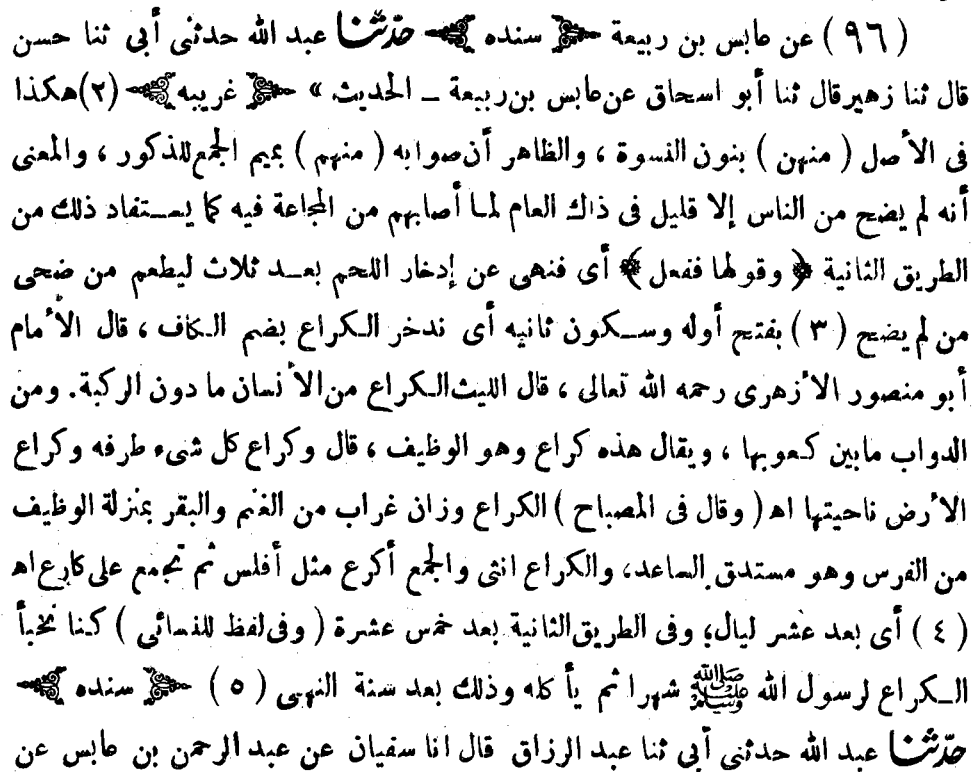 (٩٦) عن عابس بن ربيعة ﴿ سنده ﴾ حدثنا عبد الله حدثني أبي ثنا حسن
قال ثنا زهير قال ثنا أبو اسحاق عن عابس بن ربيعة ــ الحديث » ﴿ غريبه ﴾ (٢) هكذا
في الأصل ( منهن ) بنون النسوة ، والظاهر أن صوابه ( منهم ) بميم الجمع للذكور ، والمعنى
أنه لم يضح من الناس إلا قليل في ذاك العام لما أصابهم من المجاعة فيه كما يستفاد ذلك من
الطريق الثانية ﴿ وقولها ففعل ﴾ أى فنهى عن إدخار اللحم بعد ثلاث ليطعم من ضحى
من لم يضح (٣) بفتح أوله وسكون ثانيه أى ندخر الكراع بضم الكاف ، قال الأمام
أبو منصور الأزهرى رحمه الله تعالى ، قال الليث الكراع من الأنسان ما دون الركبة. ومن
الدواب مابين كعوبها ، ويقال هذه كراع وهو الوظيف ، قال وكراع كل شىء طرفه وكراع
الأرض ناحيتها اه ( وقال في المصباح ) الكراع وزان غراب من الغنم والبقر بمنزلة الوظيف
من الفرس وهو مستدق الساعد، والكراع انثى والجمع أكرع مثل أفلس ثم تجمع على كارع اه
(٤) أى بعد عشر ليال، وفى الطريق الثانية بعد خمس عشرة ( وفى لفظ للنسائى ) كنا نخبأ
الكراع لرسول الله ﷺ شهرا ثم يأكله وذلك بعد سنة النهى (٥) ﴿ سنده ﴾
حدثنا عبد الله حدثني أبي ثنا عبد الرزاق قال انا سفيان عن عبد الرحمن بن عابس عن